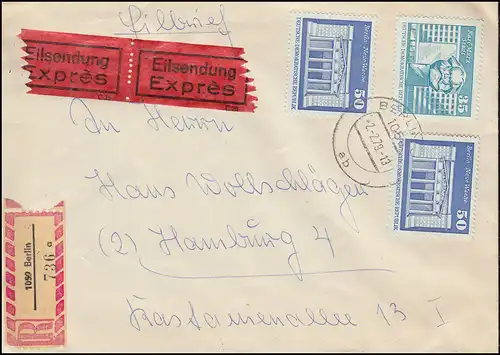 Eilbrief
Eilsendung
Exprès
Eilsendung
Exprès
Berlin, Neue Wache
50
DEUTSCHE DEMOKRATISCHE REPUBLIK
Karl-Marx-Stadt
35
DEUTSCHE DEMOKRATISCHE REPUBLIK
Berlin, Neue Wache
50
DEUTSCHE DEMOKRATISCHE REPUBLIK
BERLIN
-2.2.79-18
ab
An Herrn
Hans Wollschläger
(2) Hamburg 4
Kastanienallee 13 I
R
1059 Berlin
736 a